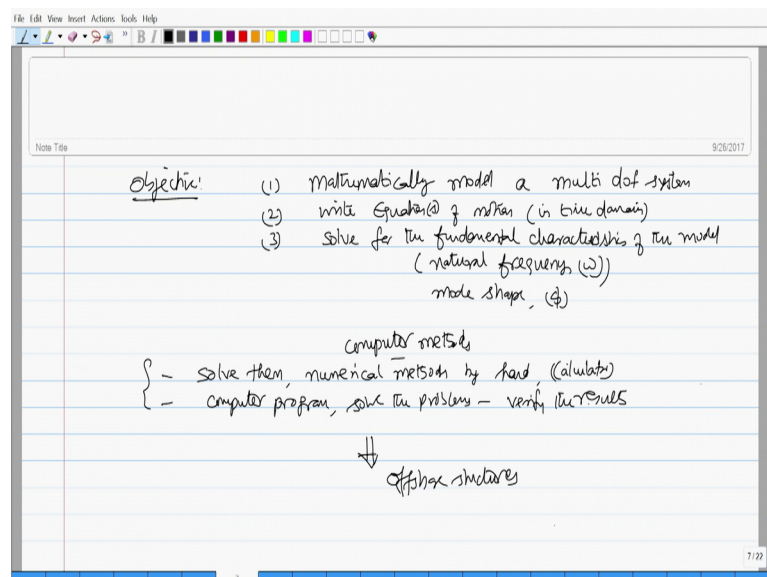 File Edit View Insert Actions Tools Help
B I
Note Title 9/26/2017
Objective: (1) Mathematically model a multi dof system
(2) write Equation(s) of motion (in time domain)
(3) solve for the fundamental characteristics of the model
(natural frequency (ω))
mode shape, (φ)
computer methods
- solve them, numerical methods by hand, (calculator)
- computer program, solve the problems - verify the results
⇓
offshore structures
7/22